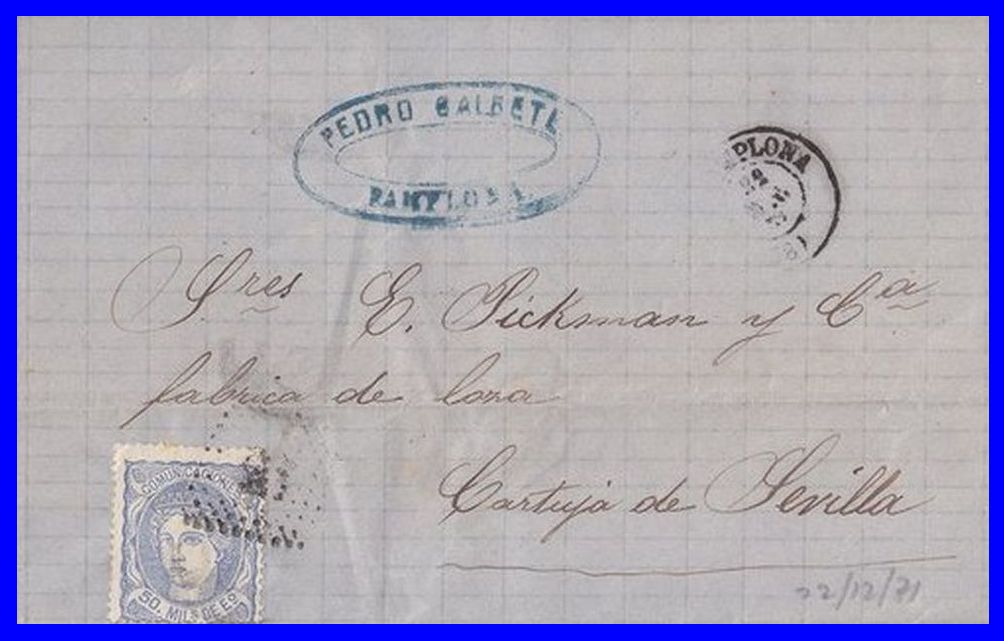 PEDRO GALBETE
PAMPLONA
PLONA
Sres E. Pickman y Ca
fabrica de loza
Cartuja de Sevilla
COMUNICACIONES
50. MILS DE Eo
22/12/71